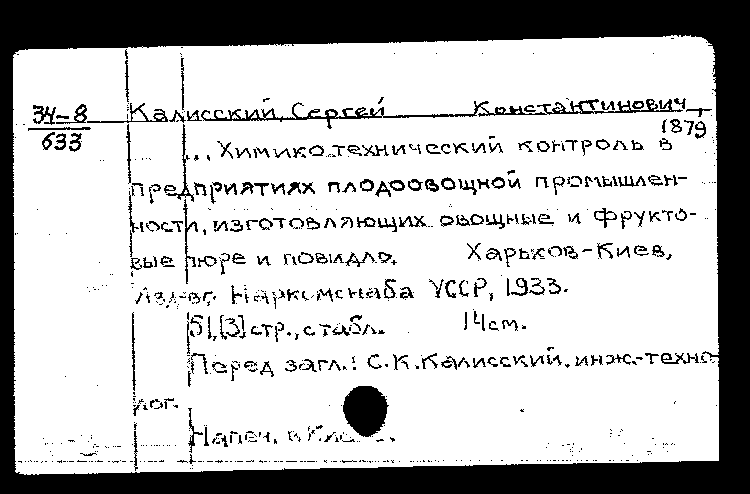 34-8 Калисский, Сергей Константинович,
633 1879
... Химико-технический контроль в
предприятиях плодоовощной промышлен-
ности, изготовляющих овощные и фрукто-
вые пюре и повидло. Харьков-Киев,
Изд-во Наркомснаба УССР, 1933.
51,[3] стр., с табл. 14 см.
Перед загл.: С.К.Калисский. инж.-техно-
лог.
Напеч. в